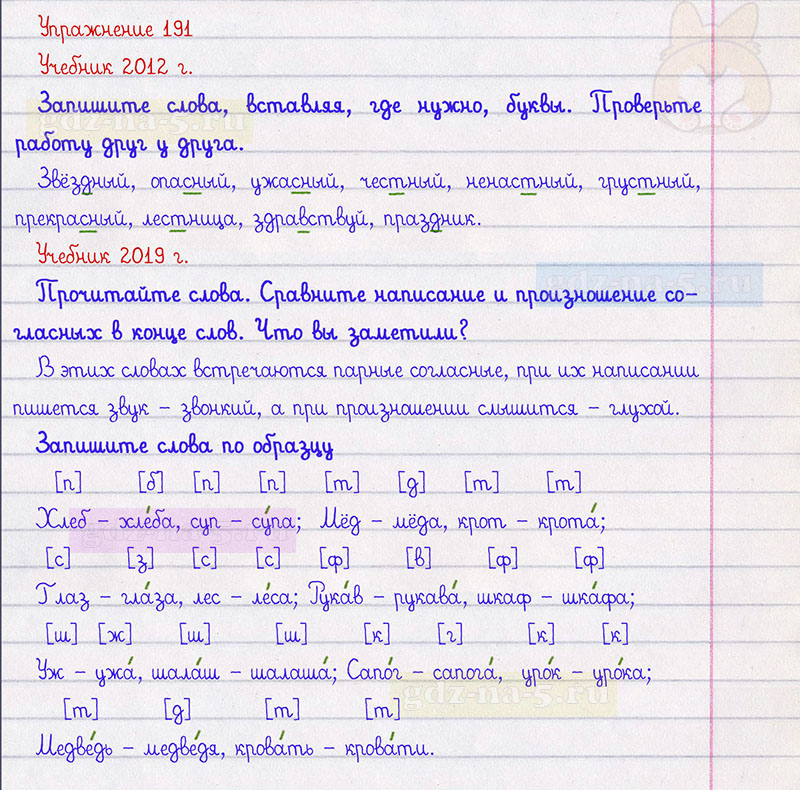 Упражнение 191
Учебник 2012 г.
Запишите слова, вставляя, где нужно, буквы. Проверьте
работу друг у друга.
gdz-na-5.ru
Звёздный, опасный, ужасный, честный, ненастный, грустный,
прекрасный, лестница, здравствуй, праздник.
Учебник 2019 г.
gdz-na-5.ru
Прочитайте слова. Сравните написание и произношение со-
гласных в конце слов. Что вы заметили?
В этих словах встречаются парные согласные, при их написании
пишется звук – звонкий, а при произношении слышится – глухой.
Запишите слова по образцу
[п] [б] [п] [п] [т] [д] [т] [т]
Хлеб – хле́ба, суп – су́па; Мёд – мёда, крот – крота́;
gdz-na-5.ru
[с] [з] [с] [с] [ф] [в] [ф] [ф]
Глаз – гла́за, лес – ле́са; Рука́в – рукава́, шкаф – шка́фа;
[ш] [ж] [ш] [ш] [к] [г] [к] [к]
Уж – ужа́, шала́ш – шалаша́; Сапо́г – сапога́, уро́к – уро́ка;
gdz-na-5.ru
[т] [д] [т] [т]
Медве́дь – медве́дя, крова́ть – крова́ти.